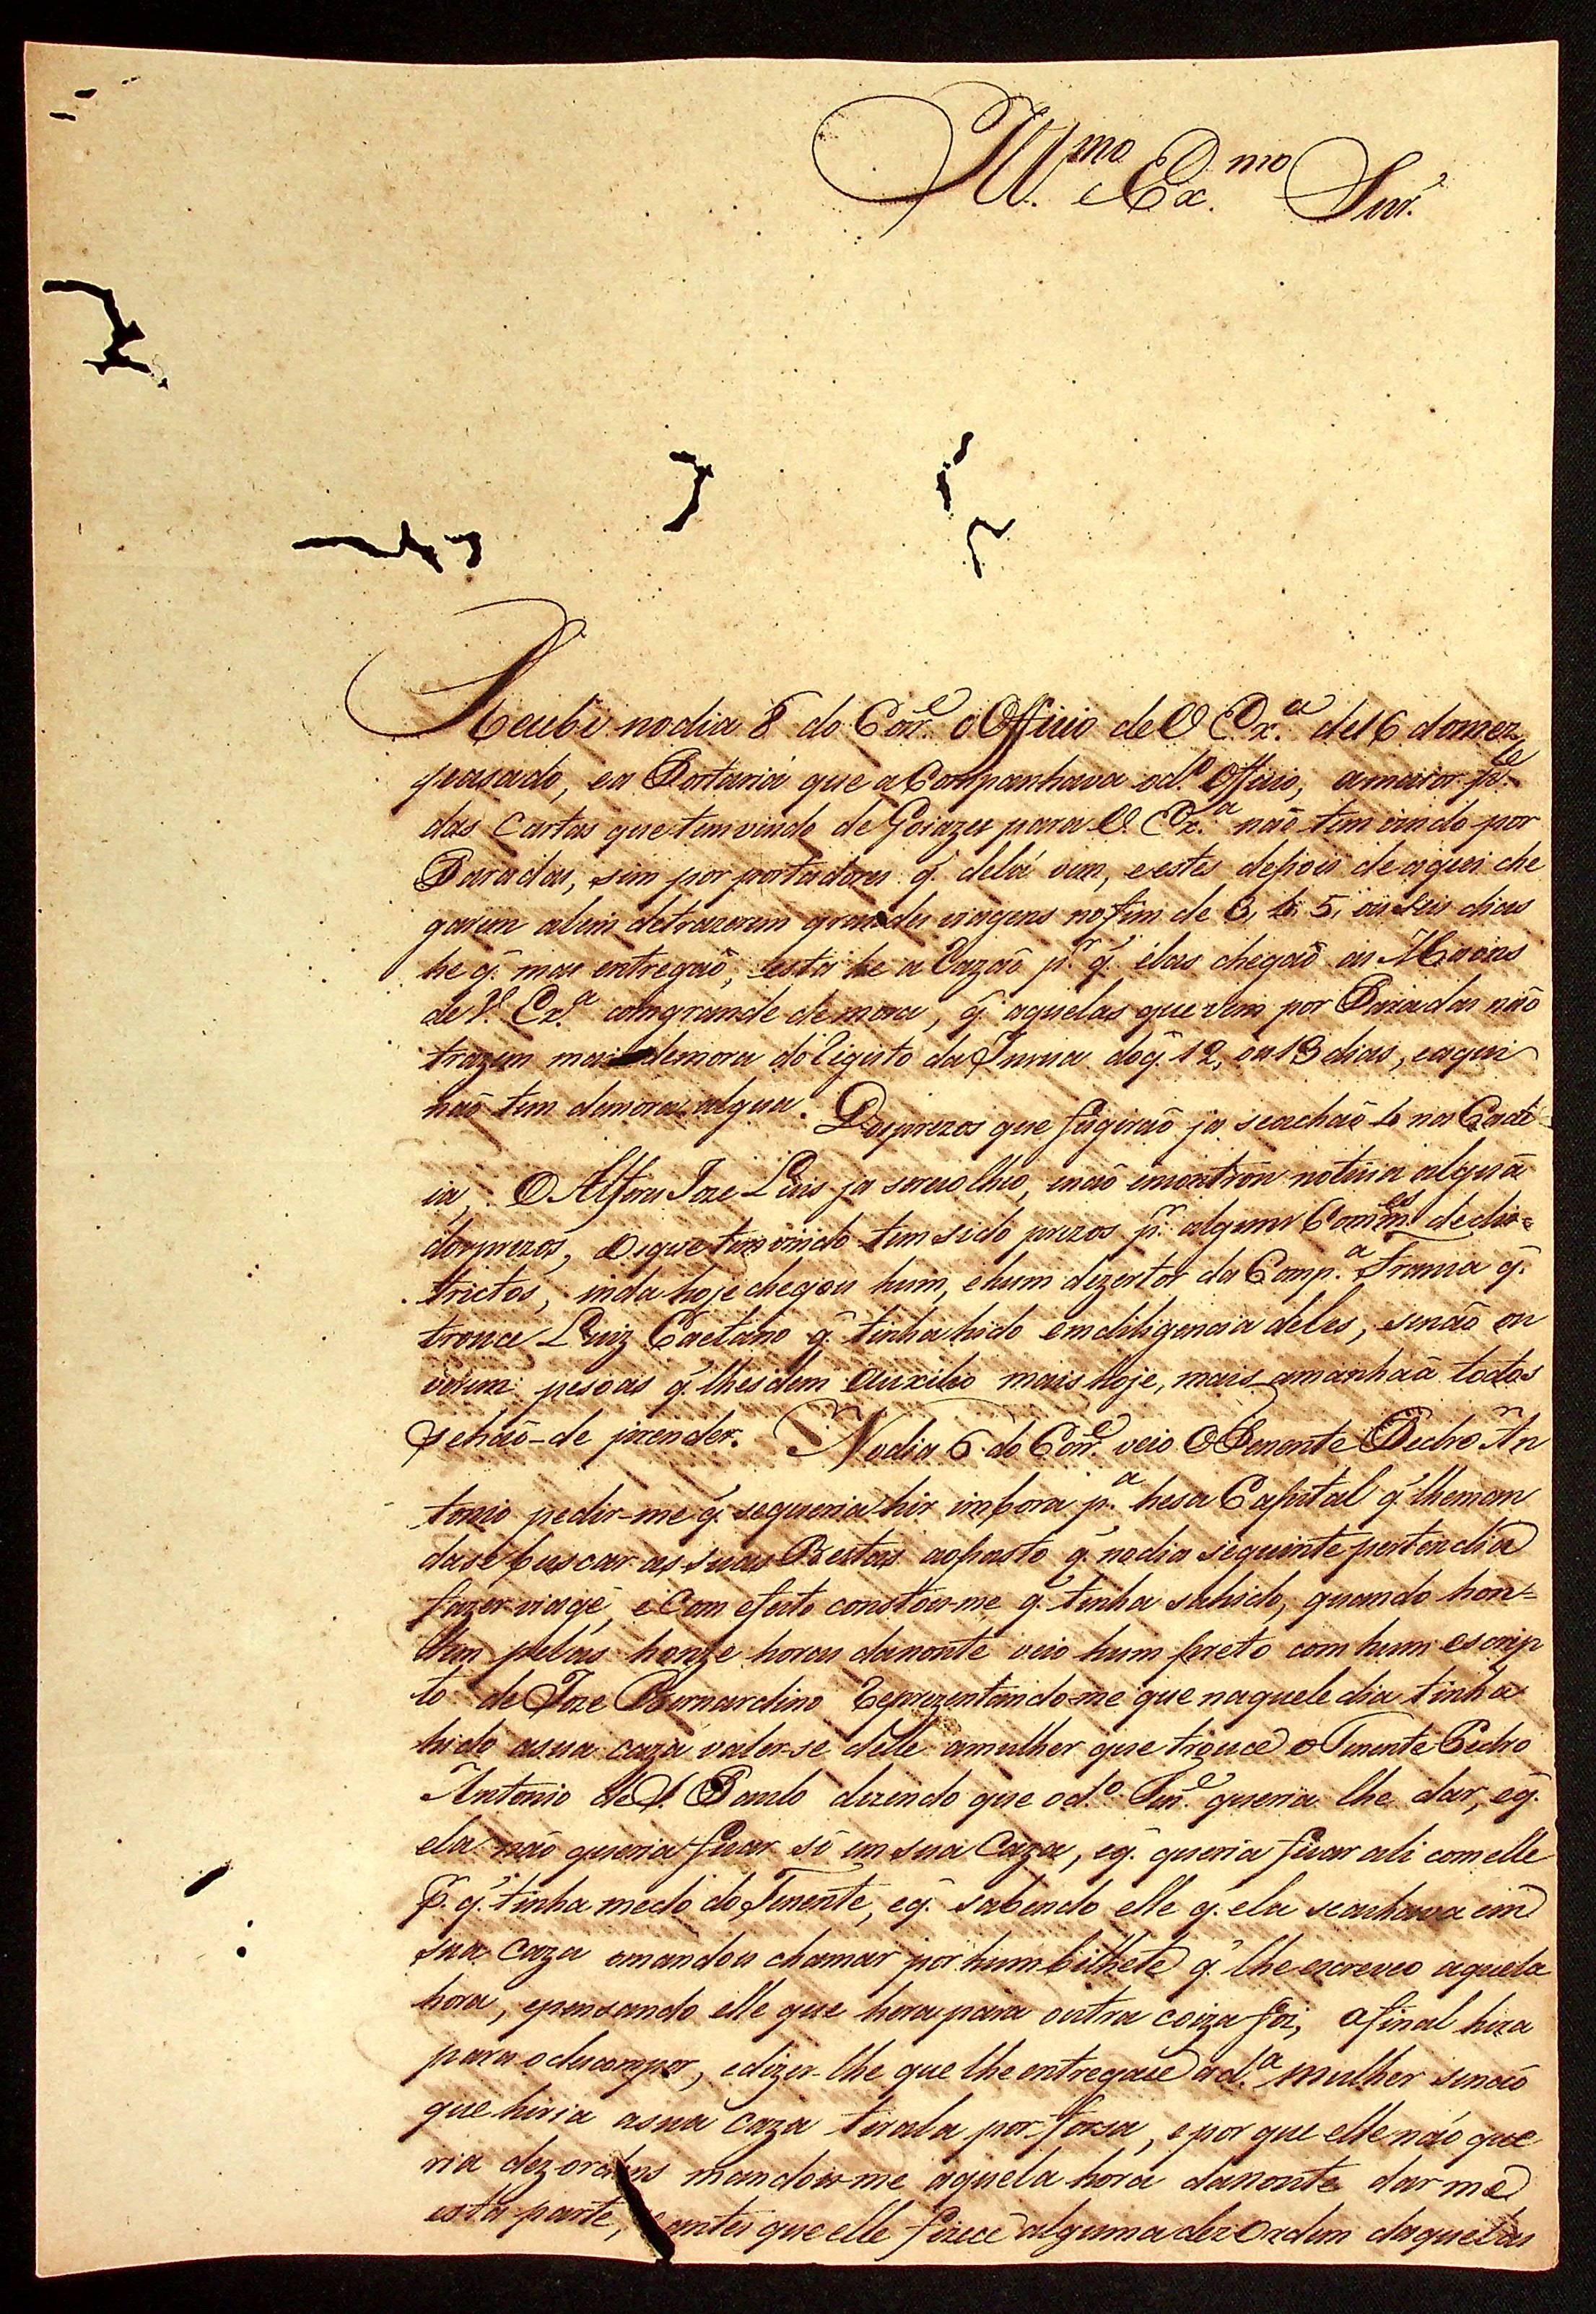 Ill.mo Ex.mo Snr.
Recebi no dia 8 do Corr.e o Officio de V Ex.a de 16 do mez
pasado, ea Portaria que aCompanhava o d.o Officio, a maior p.te
das Cartas que tem vindo de Goiazes para V. Ex.a não tem vindo por
Paradas, sim por portadores q. delá vem, e estes depois de aqui che
garem alem detrazerem grandes viagens no fim de 3, 4, 5, ou seis dias
he q. mas entregaõ, esta he a Razaõ p.r q. élas chegaõ as Maõns
de V. Ex.a com grande demora, q. aquelas que vem por Paradas não
trazem mais demora do Registo da Franca do q. 12, ou 13 dias, e aqui
naõ tem demora algua. Dos prezos que fugiraõ ja se achaõ 4 na Cade
ia, O Alferes Joze Luis ja se recolheo, e não encontrou noticia algũa
dos prezos, Os que tem vindo tem sido prezos p.r alguns Comm.es de dis=
trictos, inda hoje chegou hum, e hum dezertor da Comp.a Franca q.
trouce Luiz Caetano q. tinha hido em diligencia deles, se não ou
verem pesoas q. lhes dem Auxilio mais hoje, mais amanhaã todos
se haõ-de prender. No dia 6 do Corr.e veio O Tenente Pedro An
tonio pedir-me q. se queria hir imbora p.a hesa Capital q. lhe man
dase buscar as suas Bestas ao pasto q. no dia seguinte pertendia
fazer viage, e Com efeito constou-me q. tinha sahido, quando hon=
tem pelas honze horas da noute veio hum preto com hum escrip
to de Joze Bernardino Reprezentando-me que naquele dia tinha
hido a sua caza valer-se delle a mulher que trouce o Tenente Pedro
Antonio de S. Paulo dizendo que o d.o Ten.e queria lhe dar, e q.
ela não queria ficar só em sua Caza, e q. queria ficar ali com elle
p.r q. tinha medo do Tenente, e q. sabendo elle q. ela se achava em
sua Caza o mandou chamar por hum bilhete q. lhe escreveo aquela
hora, e pensando elle que hera para outra coiza foi, afinal hera
para o descompor, e dizer-lhe que lhe entregace a d.a mulher senaõ
que hiria a sua caza tirala por forsa, e por que elle não que
ria dezordens mandou-me aquela hora da noute dar me
esta parte, e antes que elle fizece alguma dezOrdem daquelas